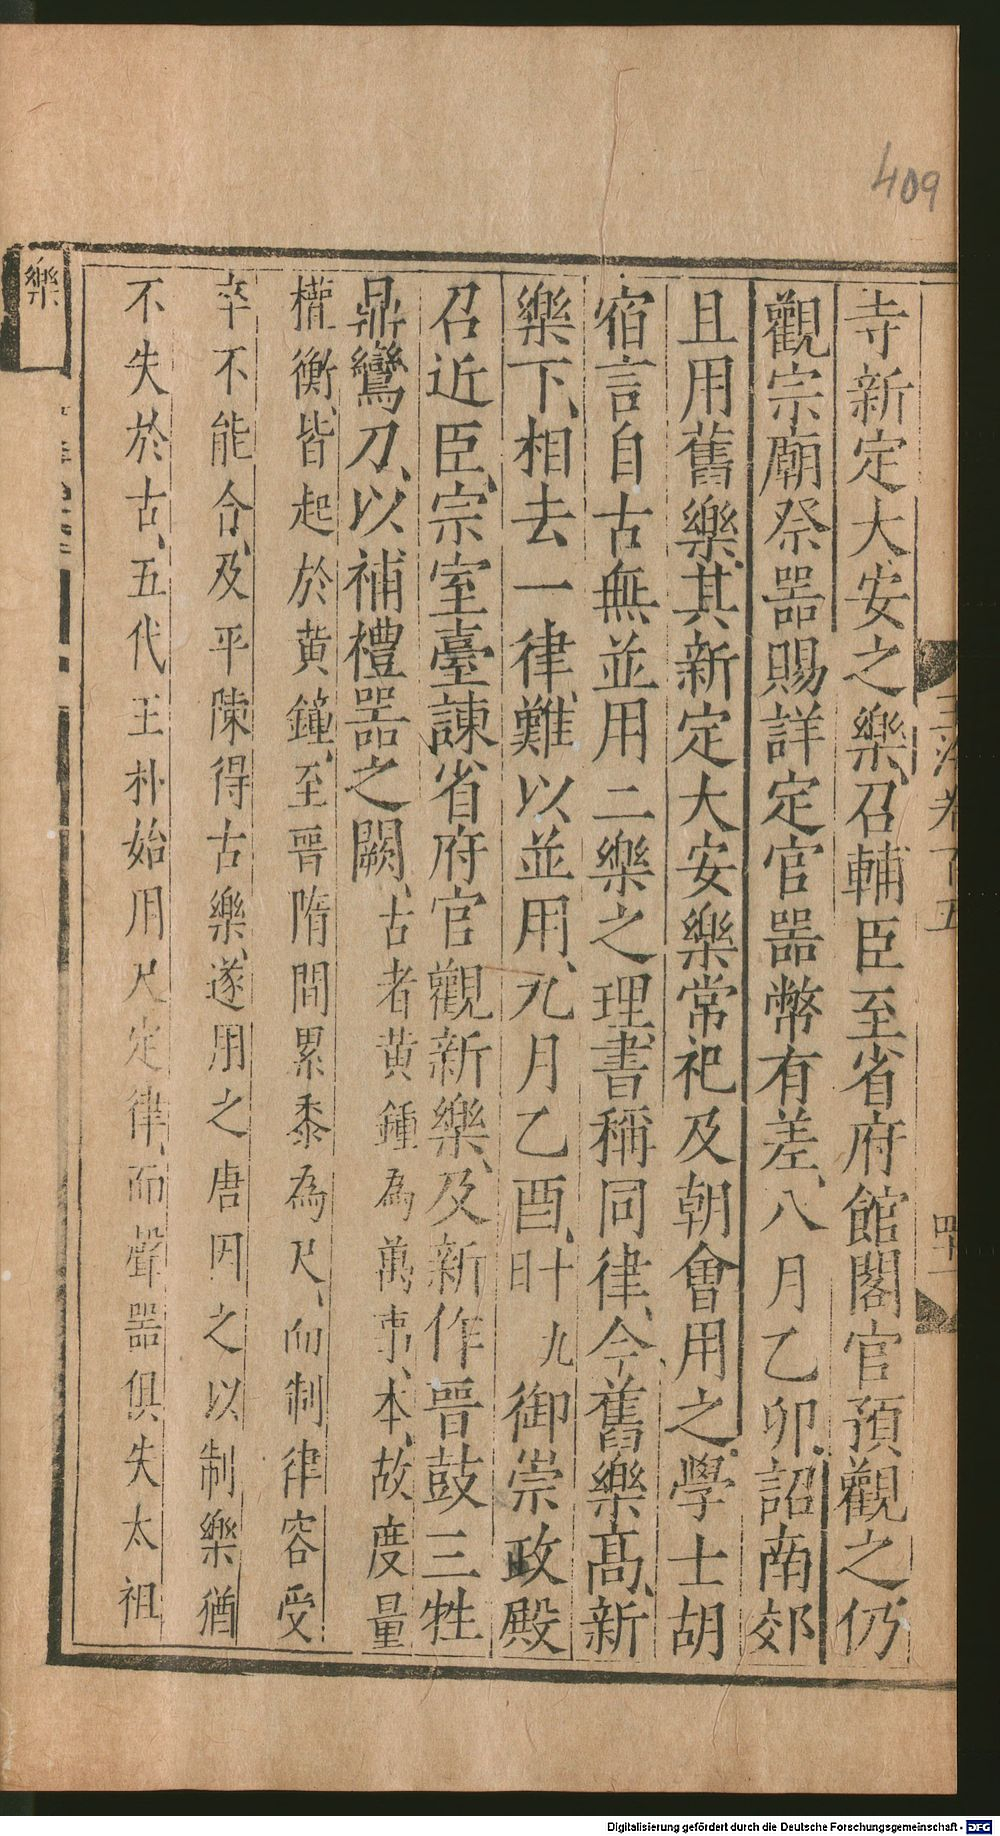 409
玉海卷百五
四十一
寺新定大安之樂、召輔臣至省府館閣官預觀之仍
觀宗廟祭器賜詳定官器幣有差、八月乙卯、詔南郊
且用舊樂、其新定大安樂常祀及朝會用之。學士胡
宿言自古無並用二樂之理、書稱同律、今舊樂高、新
樂下、相去一律、難以並用、九月乙酉、十九日御崇政殿
召近臣、宗室臺諫省府官觀新樂、及新作晉鼓三牲
鼎鸞刀、以補禮器之闕、古者黃鍾為萬事、本、故度量
權衡、皆起於黃鐘、至晉隋間累黍為尺、而制律容受
卒不能合、及平陳得古樂、遂用之唐因之以制樂猶
不失於古、五代王朴始用尺定律、而聲器俱失太祖
樂
Digitalisierung gefördert durch die Deutsche Forschungsgemeinschaft - DFG